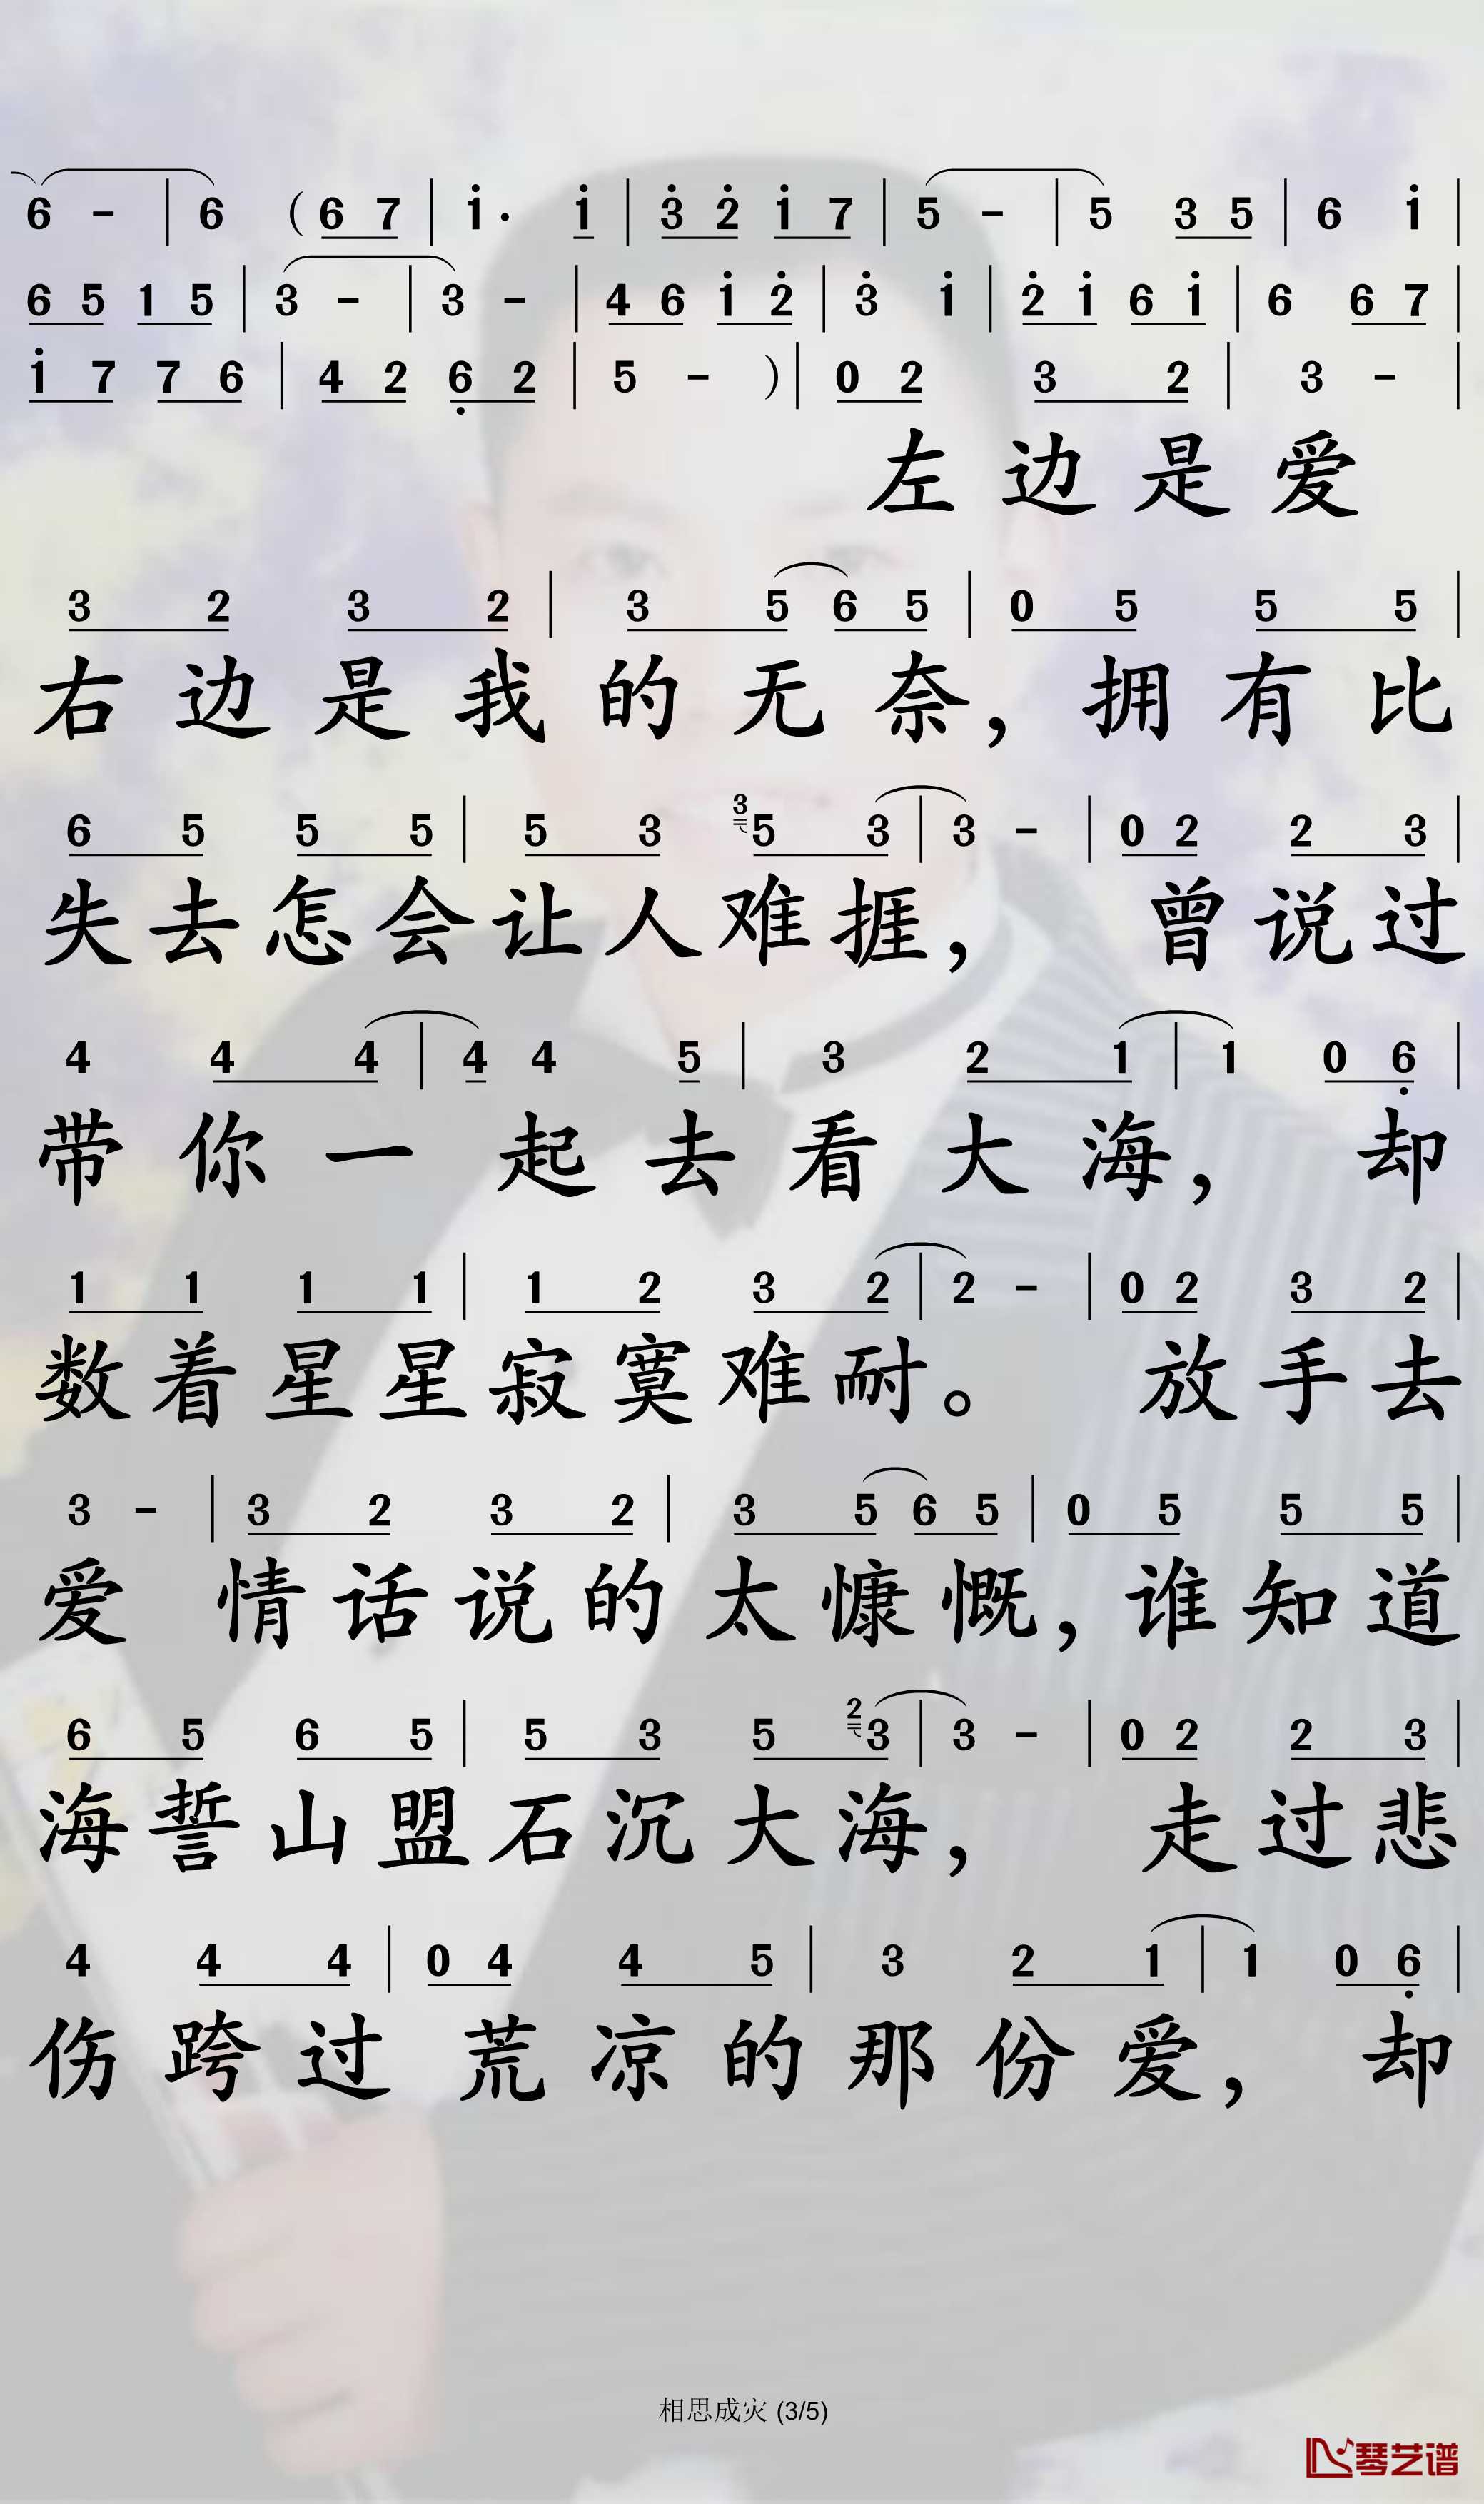 6 - | 6 ( 6 7 | i · i | 3̇ 2̇ i 7 | 5 - | 5 3 5 | 6 i |
6 5 1 5 | 3 - | 3 - | 4 6 i 2̇ | 3̇ i | 2̇ i 6 i | 6 6 7 |
i 7 7 6 | 4 2 6̣ 2 | 5 - ) | 0 2 3 2 | 3 - |
左边是爱
3 2 3 2 | 3 5 6 5 | 0 5 5 5 |
右边是我的无奈，拥有比
6 5 5 5 | 5 3 3 5 3 | 3 - | 0 2 2 3 |
失去怎会让人难捱，曾说过
4 4 4 | 4 4 5 | 3 2 1 | 1 0 6̣ |
带你一起去看大海，却
1 1 1 1 | 1 2 3 2 | 2 - | 0 2 3 2 |
数着星星寂寞难耐。放手去
3 - | 3 2 3 2 | 3 5 6 5 | 0 5 5 5 |
爱情话说的太慷慨，谁知道
6 5 6 5 | 5 3 5 2 3 | 3 - | 0 2 2 3 |
海誓山盟石沉大海，走过悲
4 4 4 | 0 4 4 5 | 3 2 1 | 1 0 6̣ |
伤跨过荒凉的那份爱，却
相思成灾 (3/5)
琴艺谱